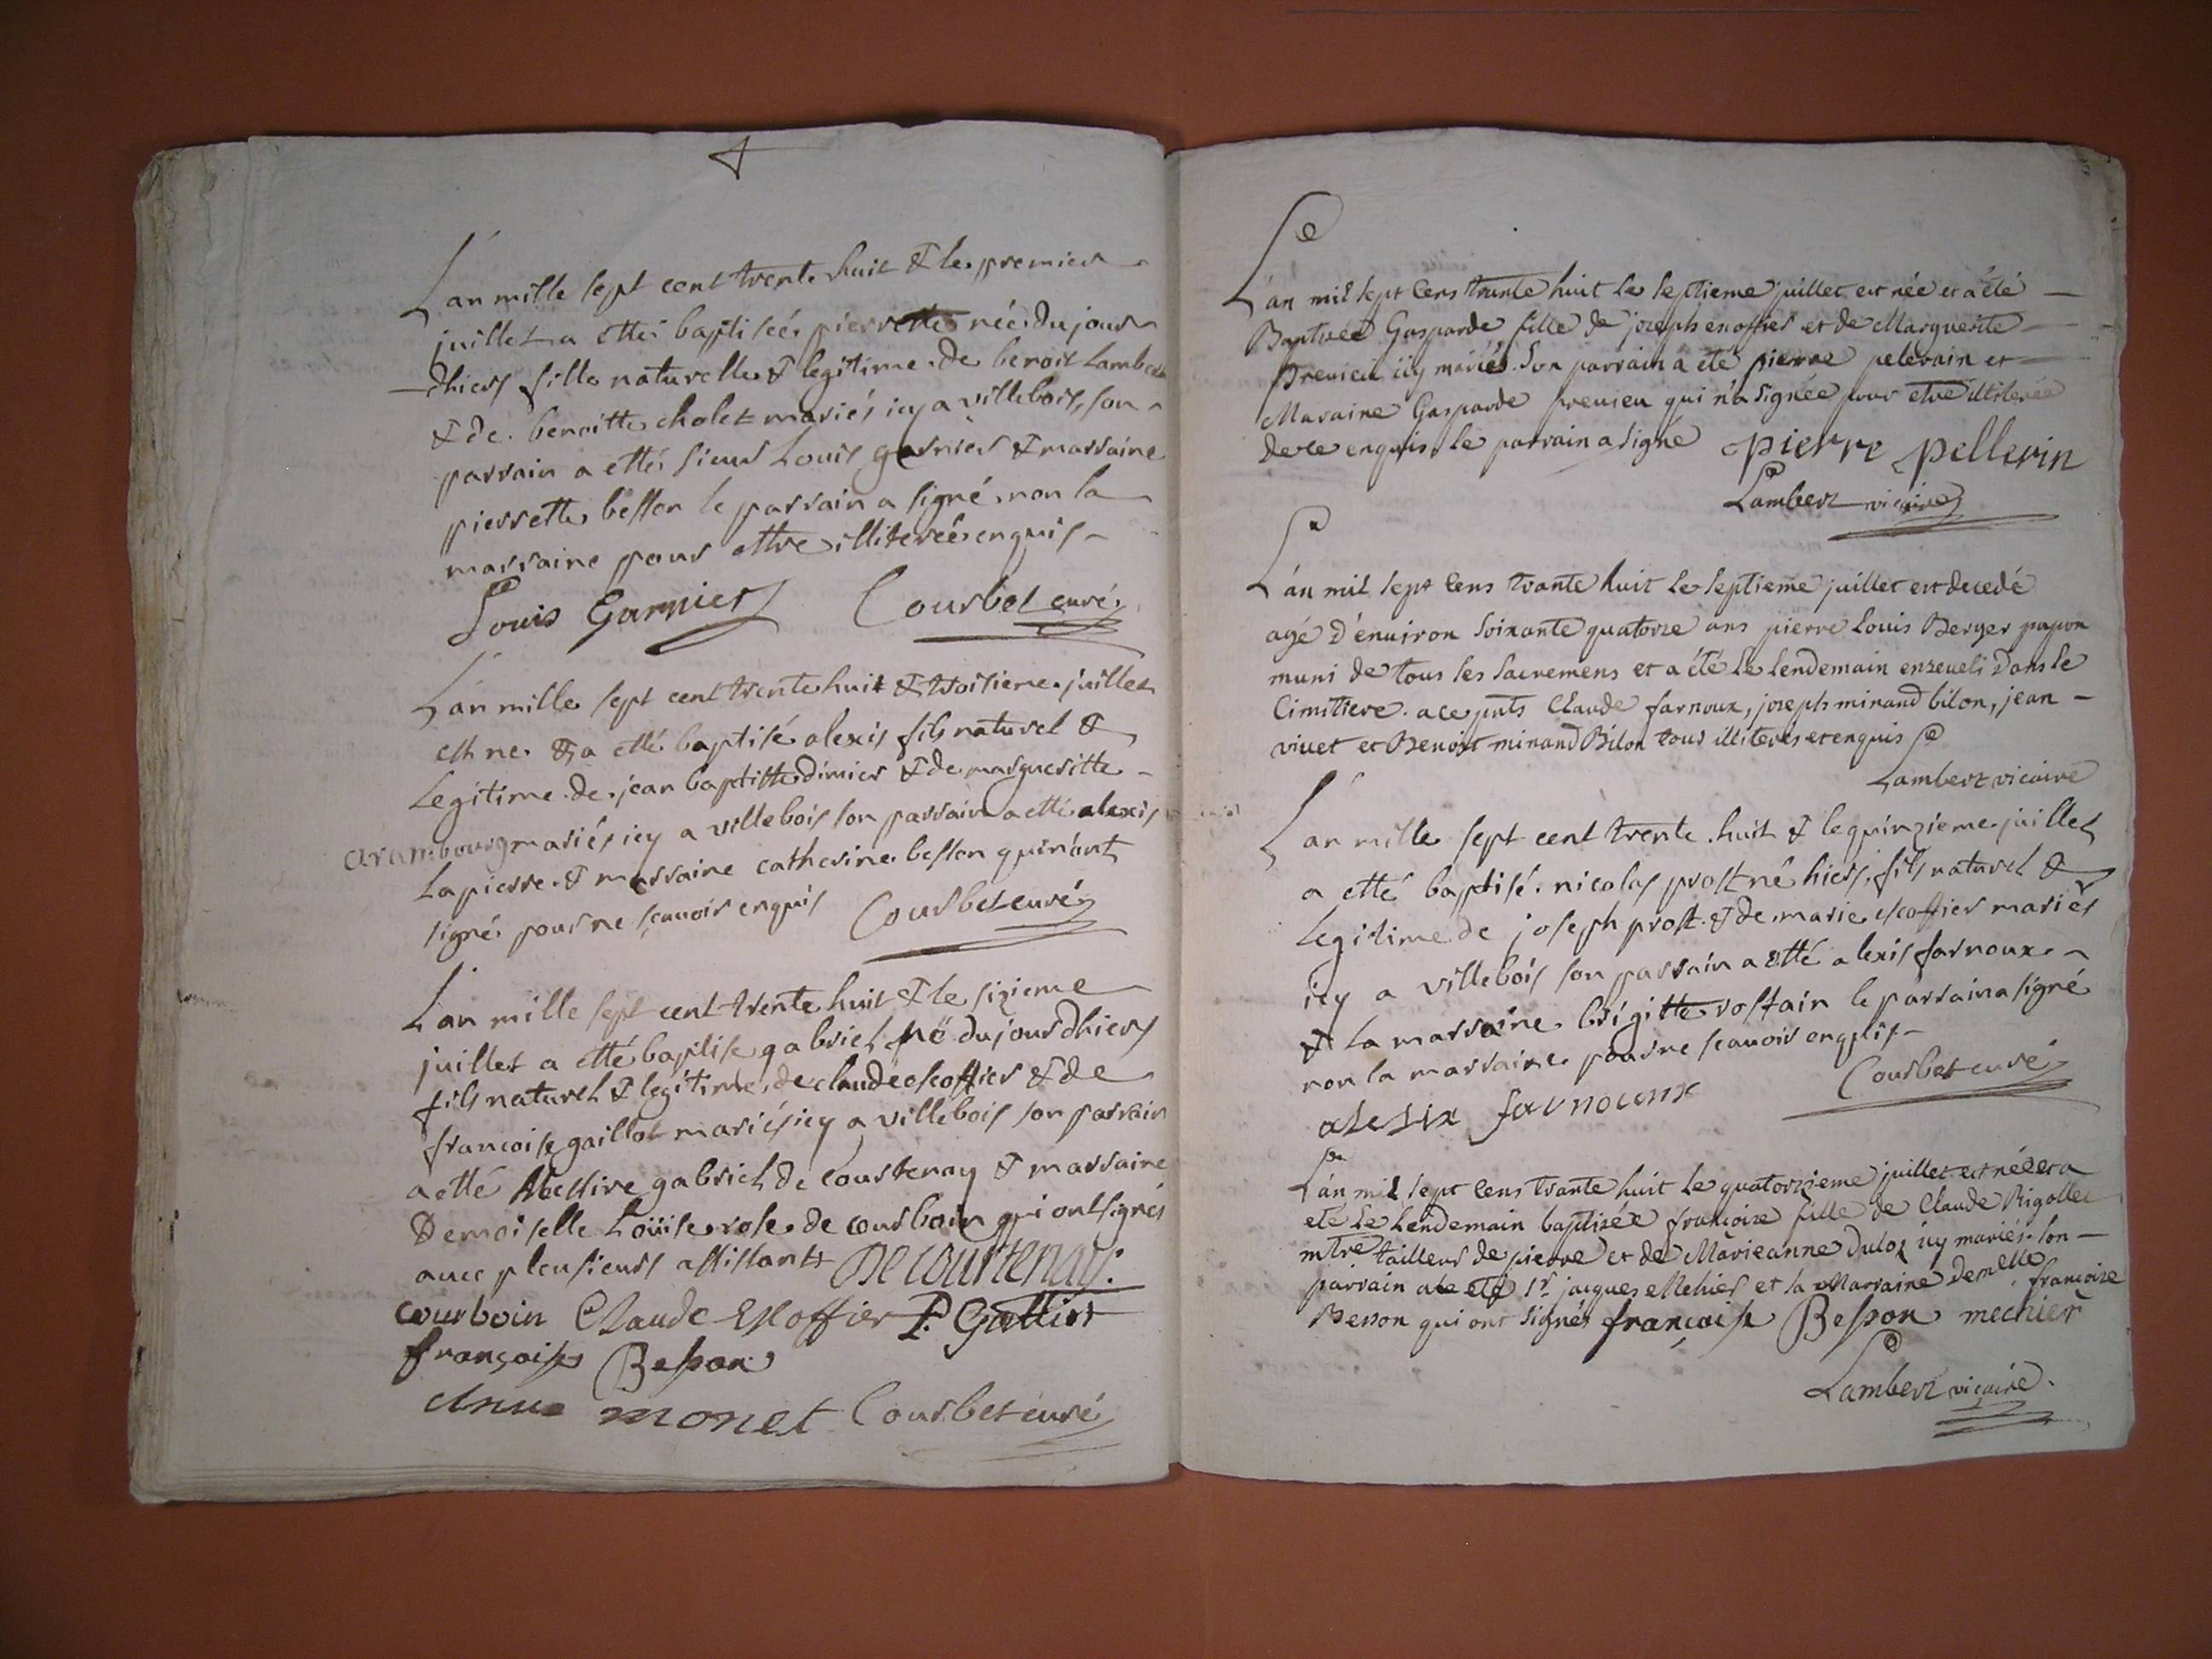 L'an mille sept cent trente huit & le premier
juillet a etté baptiseé pierrette neé du jour
dhier fille naturelle & legitime de benoit Lambert
& de benoitte cholet mariés icy a villebois, son
parrain a etté sieur Louis garnier & marraine
pierrette besson le parrain a signé non la
marraine pour ettre illitereé enquis
Louis Garnier Courbet curé
L'an mille sept cent trente huit & troisieme juillet
est né & a etté baptisé alexis fils naturel &
Legitime de jean baptitte dimier & de margueritte
arambourg mariés icy a villebois son parrain a etté alexis
Lapierre & marraine catherine besson qui n'ont
signé pour ne sçavoir enquis Courbet curé
L'an mille sept cent trente huit & le sizieme
juillet a etté baptisé gabriel né du jour dhier
fils naturel & legitime de claude escoffier & de
francoise gaillot mariés icy a villebois son parrain
a etté Messire gabriel de Courtenay & marraine
Demoiselle Loüise rose de courboin qui ont signés
avec plusieurs assistants De courtenay.
courboin Claude Escoffier P. Galliot
françoise Besson
Anne monet Courbet curé
L'an mil sept cens trante huit le septieme juillet est née et a été
Baptisée Gasparde fille de joseph escoffier et de Marguerite
Prenieu icy mariés. Son parrain a été pierre pelerain et
Maraine Gasparde preuieu qui n'a signée pour etre illiterée
de ce enquis le parrain a signé pierre pellerin
Lambert vicaire
L'an mil sept cens trante huit le septieme juillet est decedé
agé d'environ soixante quatorze ans pierre Louis Berger papon
muni de tous les sacremens et a été le lendemain enzeveli dans le
Cimitiere. a ce pnts Claude farnoux, joseph minand bilon, jean
vivet et Benoist minand Bilon tous illiteres et enquis
Lambert vicaire
L'an mille sept cent trente huit & le quinzieme juillet
a etté baptisé nicolas prost né hier, fils naturel &
Legitime de joseph prost & de marie escoffier mariés
icy a villebois son parrain a etté alexis farnoux
& la marraine brigitte rostain le parrain a signé
non la marraine pour ne scavoir enquis
alesix farnoux Courbet curé
L'an mil sept cens trante huit le quatorzieme juillet est née et a
eté le lendemain baptisée françoise fille de Claude Rigollet
mtre tailleur de pierre et de Marieanne Duloz icy mariés. Son
parrain a eté sr jacques Mehier et sa Marraine demelle françoise
Besson qui ont signés françoise Besson mechier
Lambert vicaire.